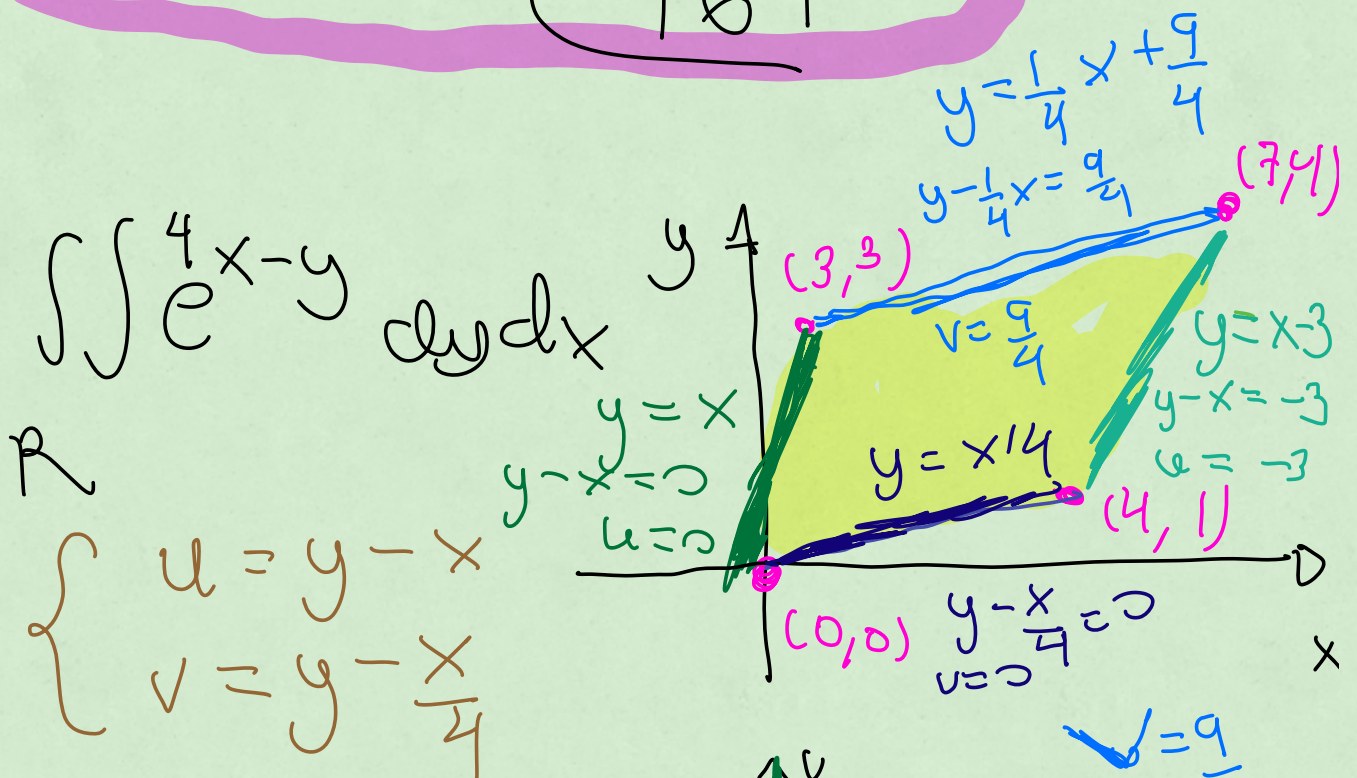 y = 1/4 x + 9/4
y - 1/4 x = 9/4
(7,4)
∫∫ e^{4x-y} dydx
R
y
(3,3)
v = 9/4
y = x-3
y-x = -3
u = -3
y = x
y-x=0
u=0
y = x/4
(4, 1)
(0,0)
y - x/4 = 0
v=0
x
{ u = y - x
v = y - x/4
v = 9
v